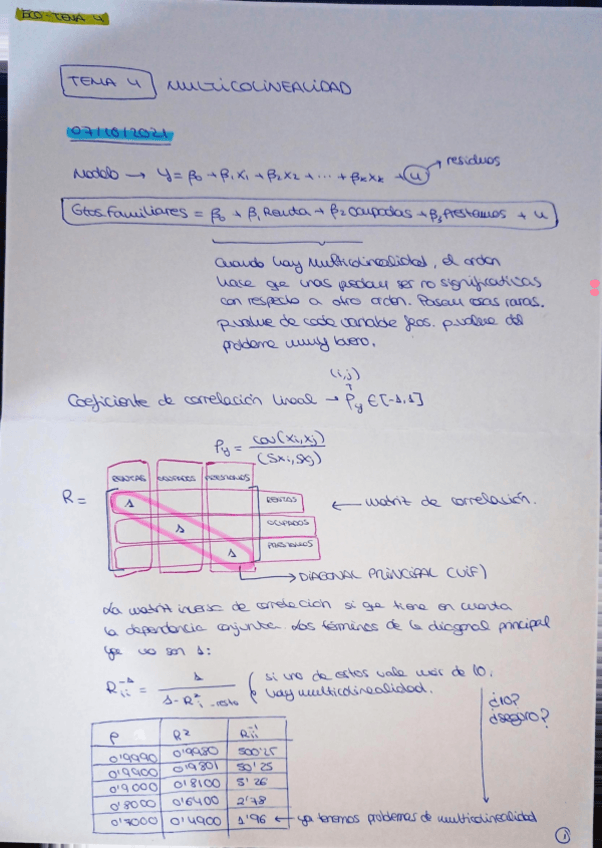 ECO-TEMA 4
TEMA 4 MULTICOLINEALIDAD
07/10/2021
Modelo → Y = β0 + β1X1 + β2X2 + ... + βkXk + u → residuos
Gtos.Familiares = β0 + β1 Renta + β2 Ocupadas + β3 Préstamos + u
Cuando hay multicolinealidad, el orden
hace que unas puedan ser no significativas
con respecto a otro orden. Pasan cosas raras.
p.value de cada variable feos. p.value del
problema muy bueno.
(i,j)
Coeficiente de correlación lineal → ρy ∈ [-1,1]
ρy = cov(xi,xj) / (Sxi,Sxj)
RENTAS OCUPADOS PRÉSTAMOS
R = 1 RENTAS ← matriz de correlación.
1 OCUPADOS
1 PRÉSTAMOS
→ DIAGONAL PRINCIPAL (VIF)
La matriz inversa de correlación si que tiene en cuenta
la dependencia conjunta. Los términos de la diagonal principal
que no son 1:
Rii^-1 = 1 / 1-R²i-resto ( si uno de estos vale más de 10,
hay multicolinealidad.
¿10?
¿seguro?
ρ R² Rii^-1
0'9990 0'9980 500'25
0'9900 0'9801 50'25
0'9000 0'8100 5'26
0'8000 0'6400 2'78
0'7000 0'4900 1'96 ← ya tenemos problemas de multicolinealidad
1